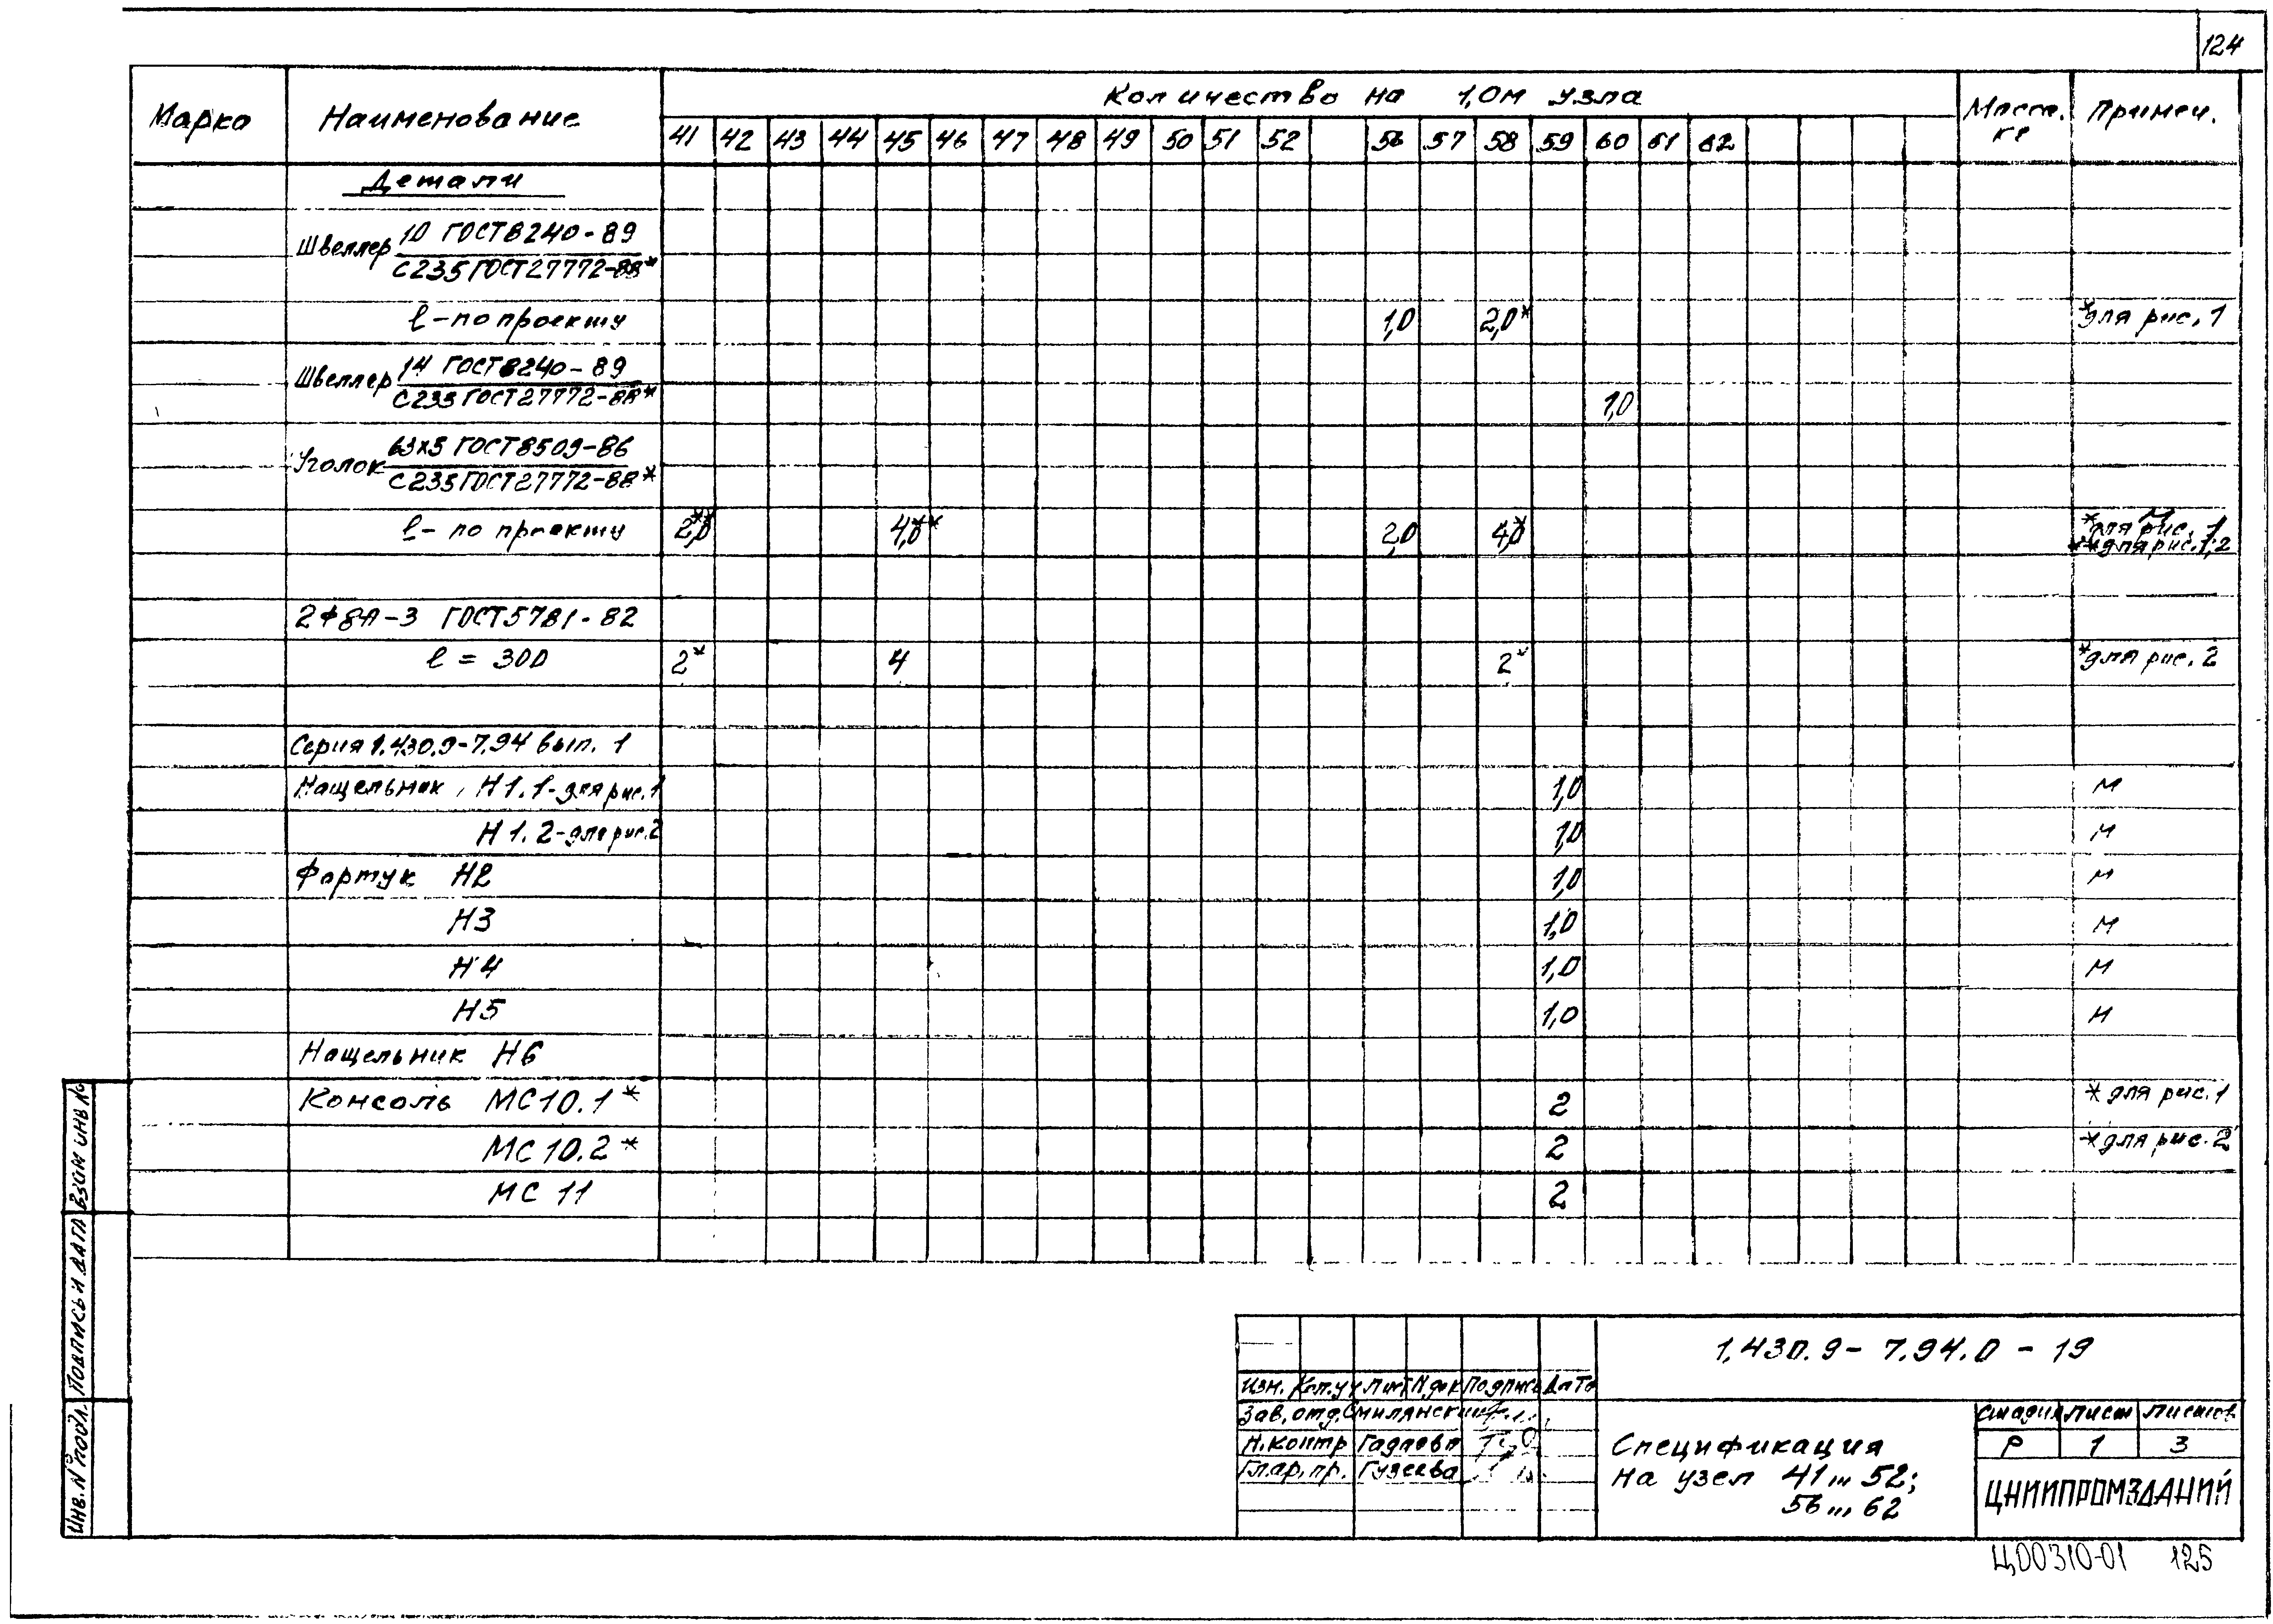 124
Марка Наименование Количество на 1,0м узла Масса, кг Примеч.
41 42 43 44 45 46 47 48 49 50 51 52 56 57 58 59 60 61 62
Детали
Швеллер 10 ГОСТ 8240-89
С235 ГОСТ 27772-88*
ℓ - по проекту 1,0 2,0* *для рис. 1
Швеллер 14 ГОСТ 8240-89
С235 ГОСТ 27772-88* 1,0
Уголок 63х5 ГОСТ 8509-86
С235 ГОСТ 27772-88*
ℓ - по проекту 2,0** 4,0** 2,0 4,0* м
*для рис. 1
**для рис. 1,2
2Ф8А-3 ГОСТ 5781-82
ℓ = 300 2* 4 2* *для рис. 2
Серия 1.430.9-7.94 вып. 1
Нащельник, Н1.1-для рис.1 1,0 м
Н1.2-для рис.2 1,0 м
Фартук Н2 1,0 м
Н3 1,0 м
Н4 1,0 м
Н5 1,0 м
Нащельник Н6
Консоль МС10.1* 2 * для рис.1
МС10.2* 2 * для рис. 2
МС 11 2
Инв. № подл. Подпись и дата Взам инв №
1.430.9-7.94.0-19
Изм. Кол.уч Лист Nдок Подпись Дата
Зав.отд. Смилянский
Н.контр Гадаева
Гл.ар.пр. Гузеева
Спецификация
на узел 41...52;
56...62
Стадия Лист Листов
Р 1 3
ЦНИИПРОМЗДАНИЙ
Ц00310-01 125